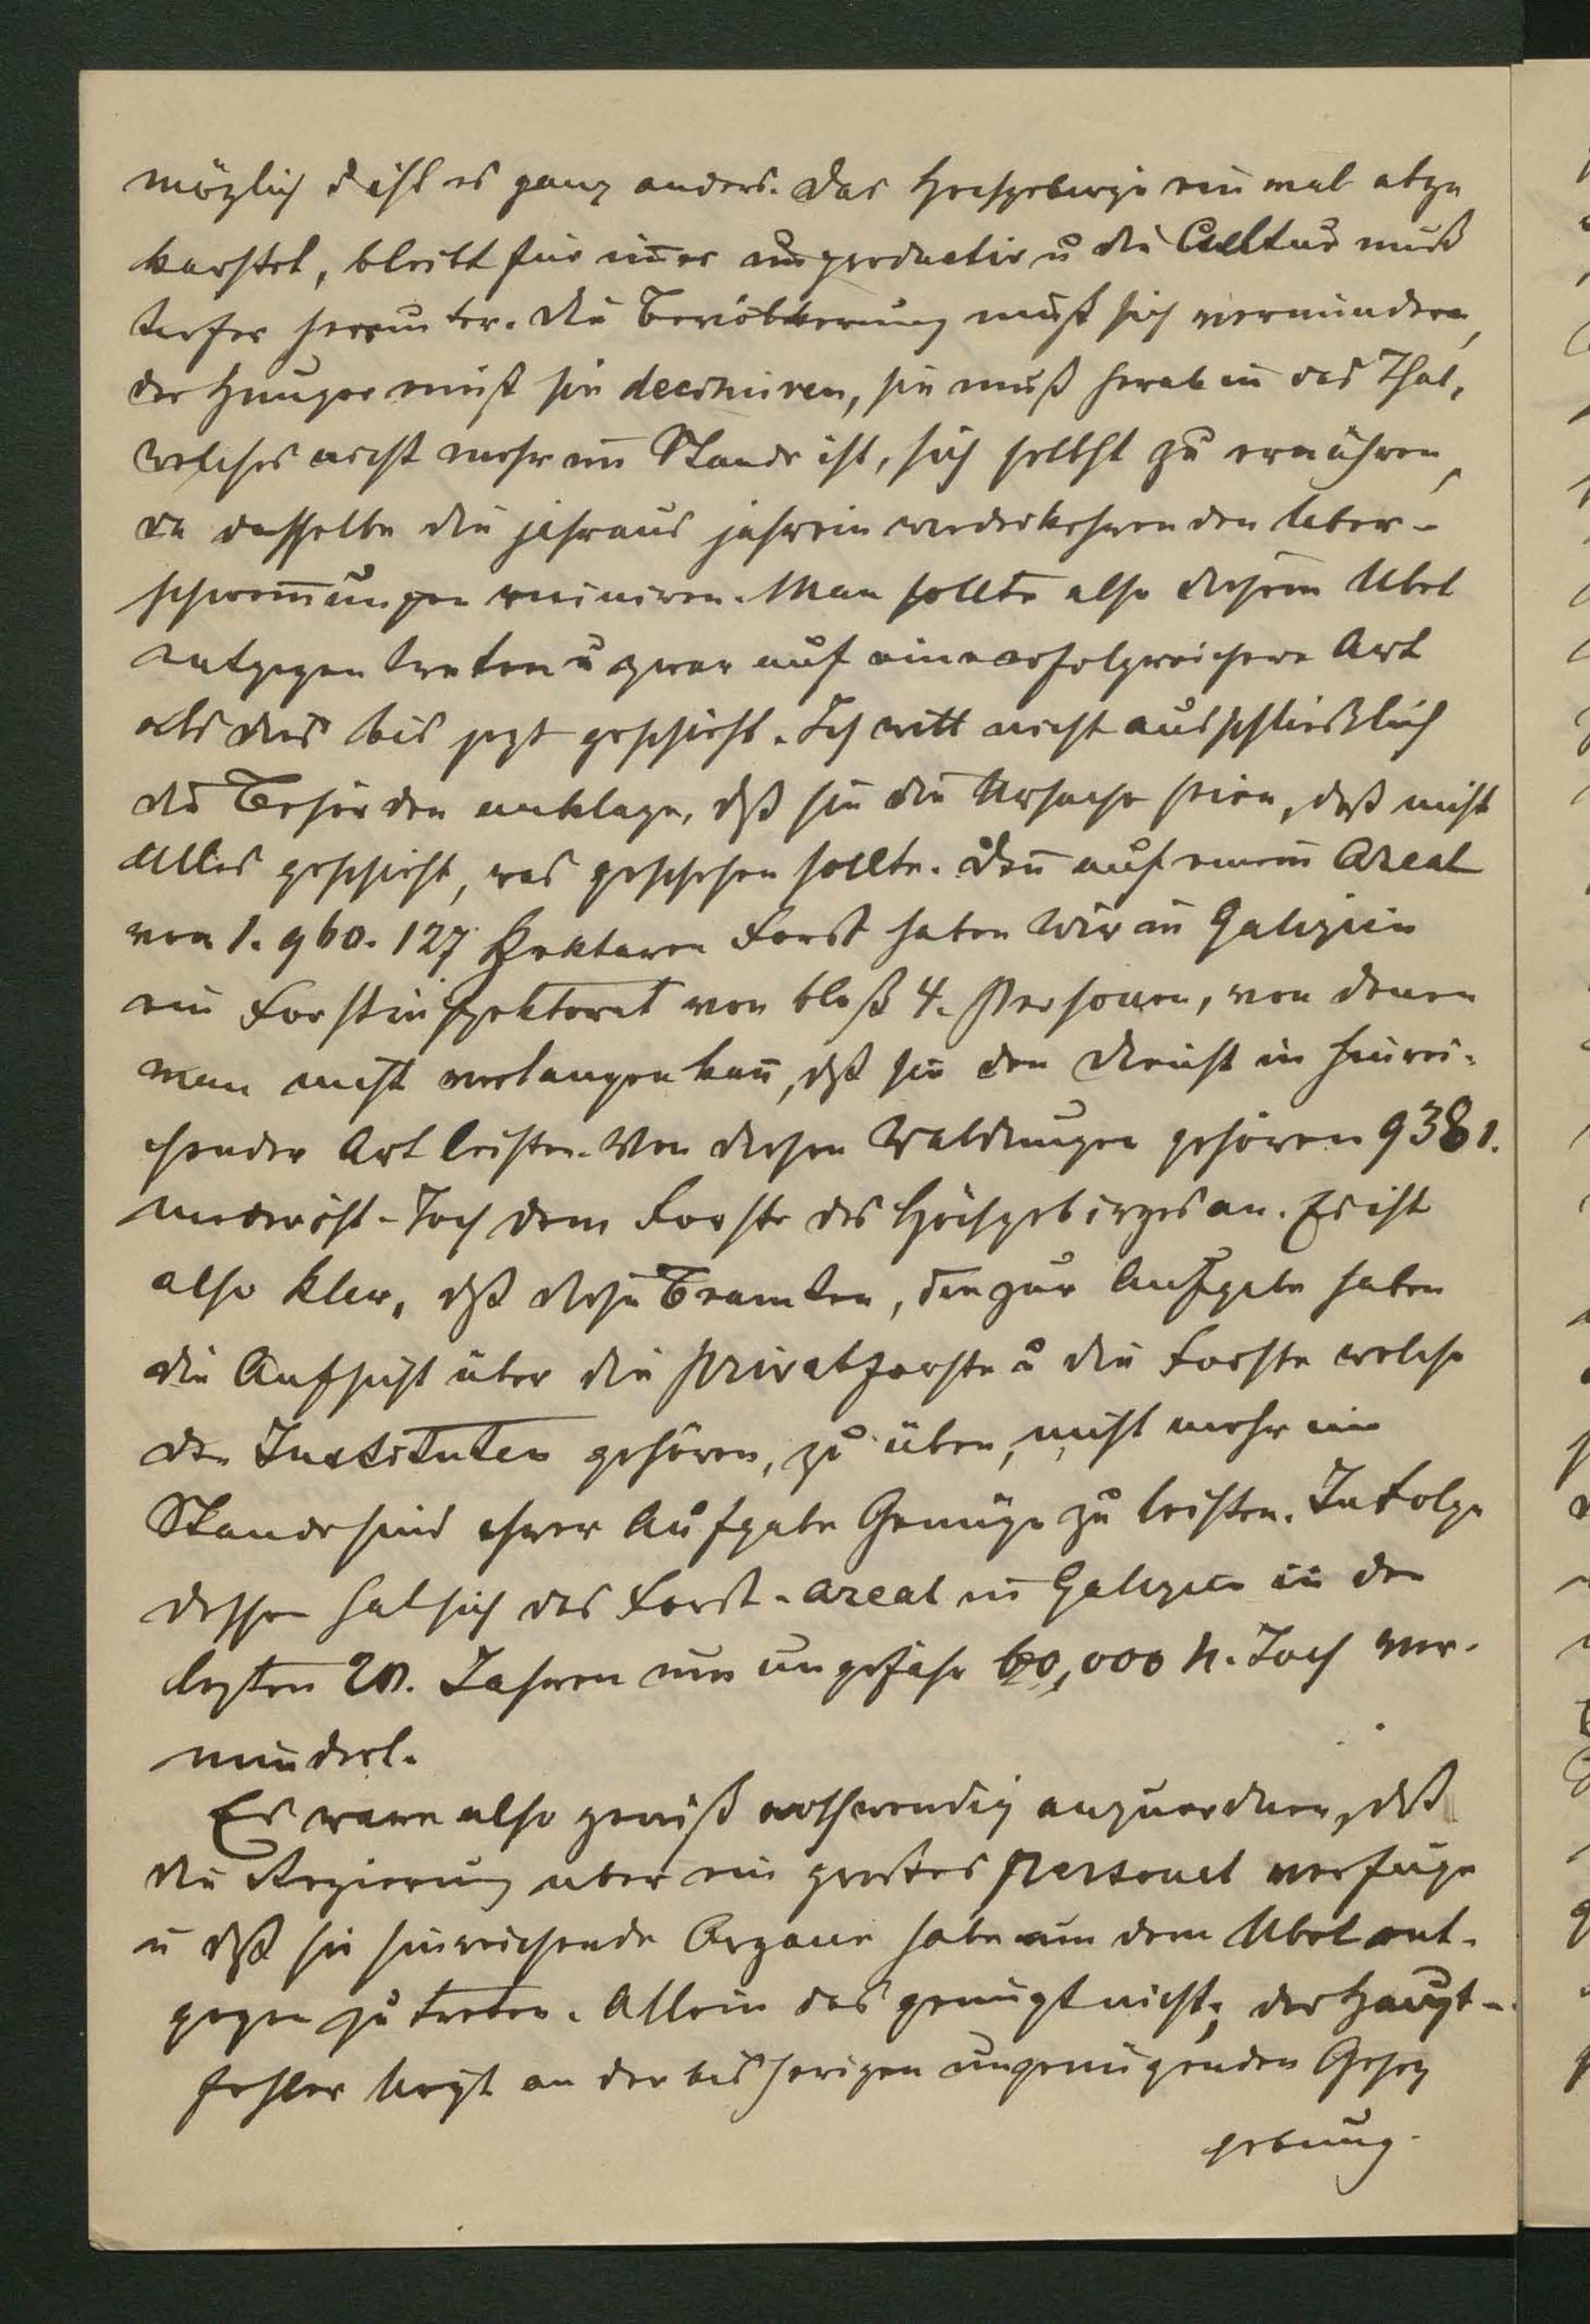 möglich d ist es ganz anders. Das Hochgebirge ein mal abge
karstet, bleibt für im̄er unproductiv u die Cultur muß
tiefer herunter. Die Bevölkerung muß sich vermindern,
der Hunger muß sie decimiren, sie muß herab in das Thal,
welches nicht mehr im Stande ist, sich selbst zu ernähren,
da dasselbe die jahraus jahrein wiederkehrenden Uber-
schwem̄ungen ruiniren. Man sollte also diesem Ubel
entgegen treten u zwar auf eine erfolgreichere Art
als dies bis jezt geschieht. Ich will nicht ausschließlich
die Behörden anklagen, dß sie die Ursache seien, daß nicht
Alles geschieht, was geschehen sollte. Den̄ auf einem Areal
von 1.960.127 Hektaren Forst haben wir in Galizien
ein Forstinspektorat von bloß 4. Personen, von denen
man nicht verlangen kan̄, dß sie den Dienst in hinrei-
chender Art leisten. Von diesen Waldungen gehören 9381.
niederöst-Joch dem Forste des Hochgebirges an. Es ist
also klar, dß diese Beamten, die zur Aufgabe haben
die Aufsicht über die Privatforste u die Forste welche
den Instituten gehören, zu üben, nicht mehr im
Stande sind ihrer Aufgabe Genüge zu leisten. In Folge
dessen hat sich das Forst-Areal in Galizien in den
lezten 20. Jahren um ungefähr 60,000 n. Joch ver-
mindert.
Es ware also gewiß nothwendig anzuordnen, dß
die Regierung uber ein großes Personal verfüge
u dß sie hinreichende Organe habe um dem Ubel ent-
gegen zu treten. Allein das genügt nicht; der Haupt-
fehler liegt an der bis herigen ungenügenden Gesez
gebung.